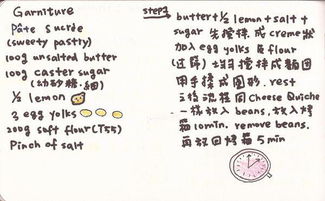 Garniture
Pâte Sucrée
(sweety pastty)
100g unsalted butter
100g caster sugar
(幼砂糖·細)
½ lemon
3 egg yolks
200g soft flour (T55)
Pinch of salt
step1 butter+½ lemon+salt+
sugar 先攪拌成creme狀
加入egg yolks & flour
(過篩) 攪拌成麵團
用手揉成圓形. rest
三格過程同Cheese Quiche
一樣放入beans, 放入烤
箱10min. remove beans.
再放回烤箱5min